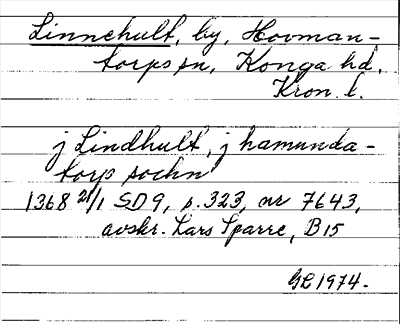 Linnehult, by, Hovman-
torps sn, Konga hd,
Kron. l.
j Lindhult, j hamunda-
torp sochn
1368 21/1 SD 9, s. 323, nr 7643,
avskr. Lars Sparre, B15
GL 1974.